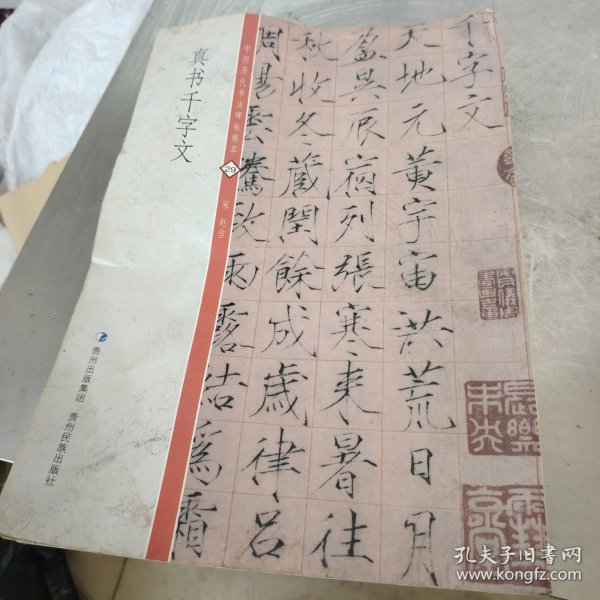 千字文
天地元黃宇宙洪荒日月
盈昃辰宿列張寒来暑往
秋收冬蔵閏餘成歳律吕
調陽雲騰致雨露結為霜
中国历代书法碑帖精萃 29 宋 赵佶
真书千字文
贵州出版集团 贵州民族出版社
孔夫子旧书网
www.kongfz.com